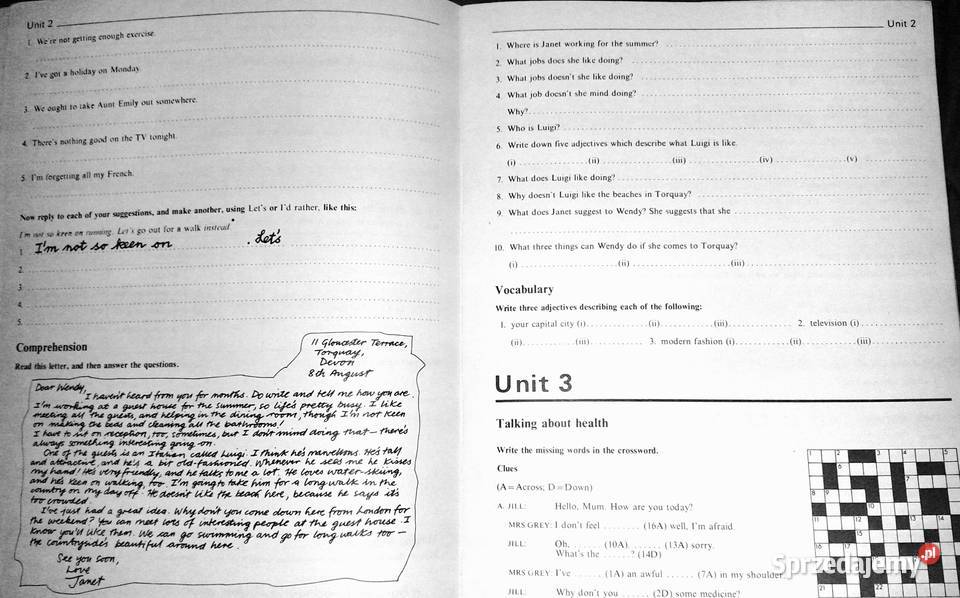 Unit 2
1. We're not getting enough exercise.
2. I've got a holiday on Monday.
3. We ought to take Aunt Emily out somewhere.
4. There's nothing good on the TV tonight.
5. I'm forgetting all my French.
Now reply to each of your suggestions, and make another, using Let's or I'd rather, like this:
I'm not so keen on running. Let's go out for a walk instead.
1. I'm not so keen on . Let's
2.
3.
4.
5.
Comprehension
Read this letter, and then answer the questions.
11 Gloucester Terrace,
Torquay,
Devon
8th August
Dear Wendy,
I haven't heard from you for months. Do write and tell me how you are.
I'm working at a guest house for the summer, so life's pretty busy. I like
meeting all the guests, and helping in the dining room, though I'm not keen
on making the beds and cleaning all the bathrooms!
I have to sit on reception, too, sometimes, but I don't mind doing that – there's
always something interesting going on.
One of the guests is an Italian called Luigi. I think he's marvellous. He's tall
and attractive, and he's a bit old-fashioned. Whenever he sees me he kisses
my hand! He's very friendly, and he talks to me a lot. He loves water-skiing,
and he's keen on walking, too. I'm going to take him for a long walk in the
country on my day off. He doesn't like the beach here, because he says it's
too crowded.
I've just had a great idea. Why don't you come down here from London for
the weekend? You can meet lots of interesting people at the guest house. I
know you'll like them. We can go swimming and go for long walks too –
the countryside's beautiful around here.
See you soon,
Love
Janet
Unit 2
1. Where is Janet working for the summer?
2. What jobs does she like doing?
3. What jobs doesn't she like doing?
4. What job doesn't she mind doing?
Why?
5. Who is Luigi?
6. Write down five adjectives which describe what Luigi is like.
(i) (ii) (iii) (iv) (v)
7. What does Luigi like doing?
8. Why doesn't Luigi like the beaches in Torquay?
9. What does Janet suggest to Wendy? She suggests that she
10. What three things can Wendy do if she comes to Torquay?
(i) (ii) (iii)
Vocabulary
Write three adjectives describing each of the following:
1. your capital city (i) (ii) (iii) 2. television (i)
(ii) (iii) 3. modern fashion (i) (ii) (iii)
Unit 3
Talking about health
Write the missing words in the crossword.
Clues
(A = Across; D = Down)
A. JILL: Hello, Mum. How are you today?
MRS GREY: I don't feel ...... (16A) well, I'm afraid.
JILL: Oh, ...... (10A) ...... (13A) sorry.
What's the ...... ? (14D)
MRS GREY: I've ...... (1A) an awful ...... (7A) in my shoulder.
JILL: Why don't you ...... (2D) some medicine?
Sprzedajemy.pl